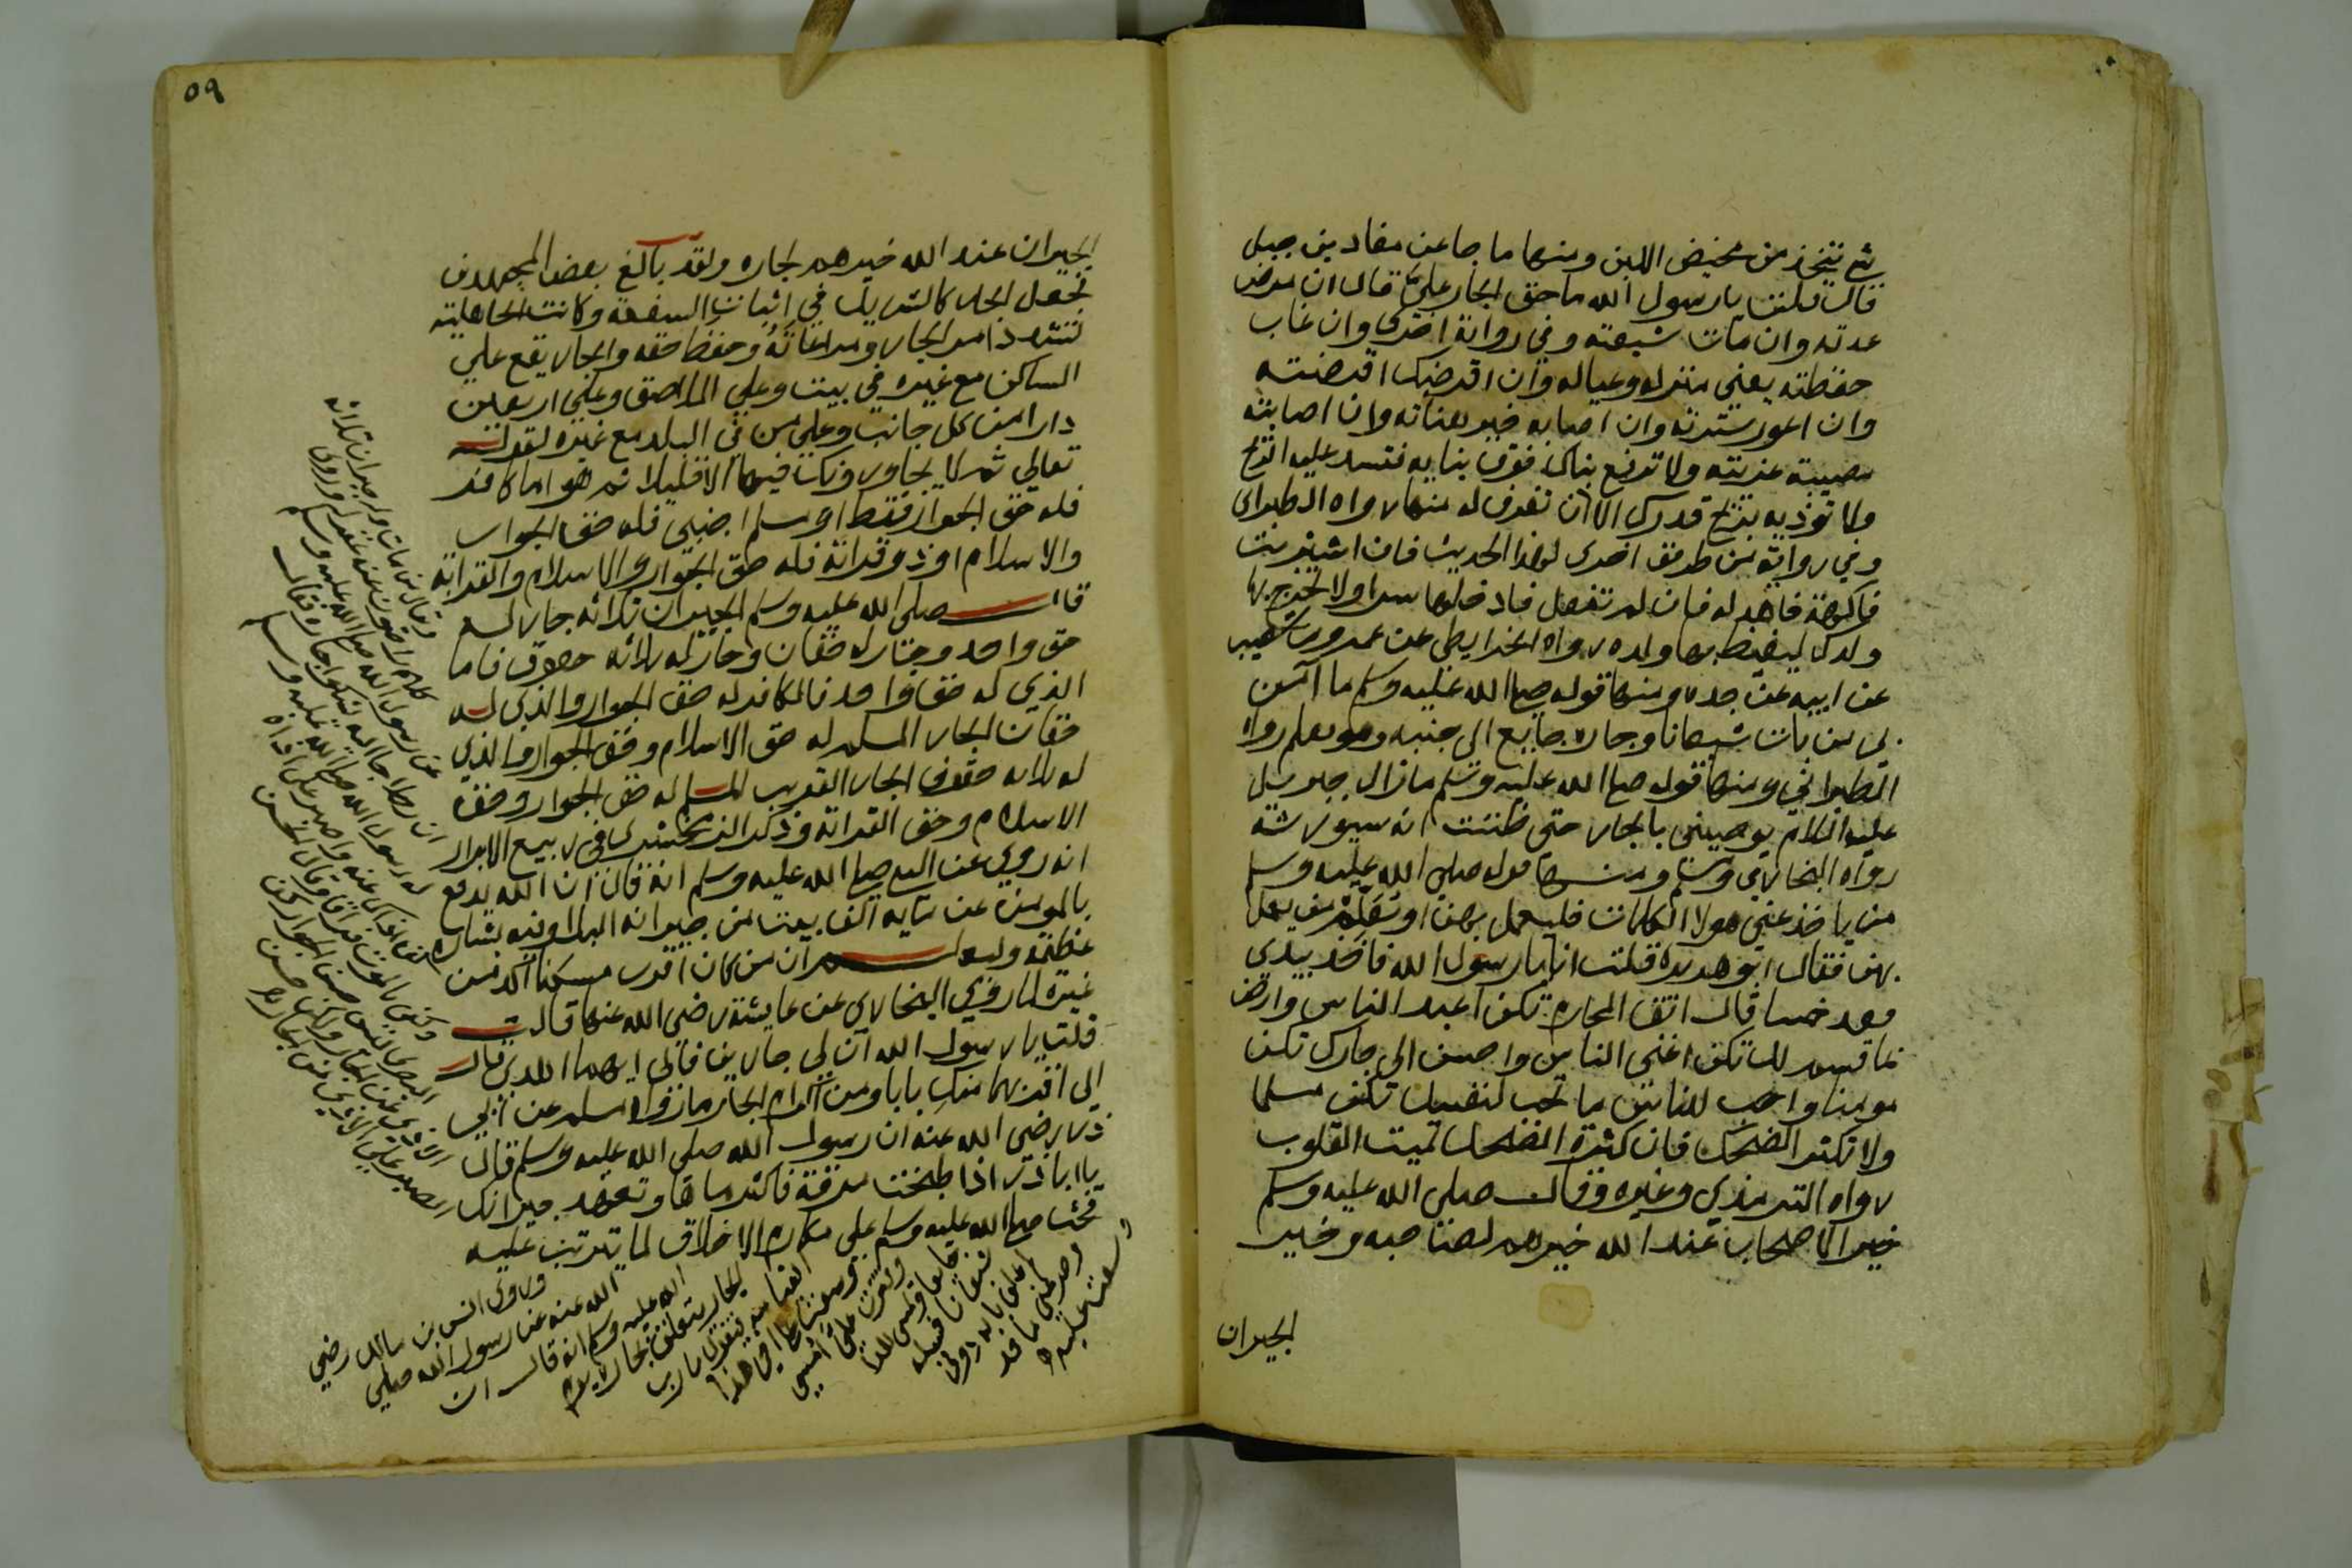 شيء يتخذ من مخيض اللبن ومنها ما جا عن معاذ بن جبل
قال قلت يا رسول الله ما حق الجار علي قال ان مرض
عدته وان مات شيعته وفي رواية اخرى وان غاب
حفظته يعني منزله وعياله وان اقرضك اقرضته
وان اعور سترته وان اصابه خير هناته وان اصابته
مصيبة عزيته ولا ترفع بناك فوق بنايه فتسد عليه الريح
ولا توذيه بريح قدرك الا ان تغرف له منها رواه الطبراني
وفي رواية من طريق اخرى لهذا الحديث فان اشتريت
فاكهة فاهد له فان لم تفعل فادخلها سرا ولا تخرج بها
ولدك ليغيظ بها ولده رواه الخرايطي عن عمرو بن شعيب
عن ابيه عن جده ومنها قوله صلى الله عليه وسلم ما آمن
بي من بات شبعانا وجاره جايع الى جنبه وهو يعلم رواه
الطبراني ومنها قوله صلى الله عليه وسلم ما زال جبريل
عليه السلام يوصيني بالجار حتى ظننت انه سيورثه
رواه البخاري ومسلم ومنها قوله صلى الله عليه وسلم
من ياخذ عني هولا الكلمات فليعمل بهن او يعلم من يعمل
بهن فقال ابو هريرة قلت انا يا رسول الله فاخذ بيدي
فعد خمسا قال اتق المحارم تكن اعبد الناس وارض
بما قسم لك تكن اغنى الناس واحسن الى جارك تكن
مومنا واحب للناس ما تحب لنفسك تكن مسلما
ولا تكثر الضحك فان كثرة الضحك تميت القلوب
رواه الترمذي وغيره وقال صلى الله عليه وسلم
خير الاصحاب عند الله خيرهم لصاحبه وخير
الجيران
٥٩
الجيران عند الله خيرهم لجاره ولقد بالغ بعض المجتهدين
فجعل الجار كالشريك في اثبات الشفعة وكانت الجاهلية
تشدد امر الجار ومراعاته وحفظ حقه والجار يقع على
الساكن مع غيره في بيت وعلى الملاصق وعلى اربعين
دارا من كل جانب وعلى من في البلد مع غيره لقوله
تعالى ثم لا يجاورونك فيها الا قليلا ثم هو اما كافر
فله حق الجوار فقط او مسلم اجنبي فله حق الجوار
والاسلام او ذو قرابة فله حق الجوار والاسلام والقرابة
قال صلى الله عليه وسلم الجيران ثلاثة جار له
حق واحد وجار له حقان وجار له ثلاثة حقوق فاما
الذي له حق واحد فالكافر له حق الجوار والذي له
حقان الجار المسلم له حق الاسلام وحق الجوار والذي
له ثلاثة حقوق الجار القريب المسلم له حق الجوار وحق
الاسلام وحق القرابة وذكر الزمخشري في ربيع الابرار
انه روي عن النبي صلى الله عليه وسلم انه قال ان الله يدفع
بالمومن عن ماية الف بيت من جيرانه البلا وفيه بشارة
عظيمة وليعلم ان من كان اقرب مسكنا آكد من
غيره لما روي البخاري عن عايشة رضي الله عنها قالت
قلت يا رسول الله ان لي جارين فالى ايهما اهدي قال
الى اقربهما منك بابا ومن اكرام الجار ما رواه مسلم عن ابي
ذر رضي الله عنه ان رسول الله صلى الله عليه وسلم قال
يا ابا ذر اذا طبخت مرقة فاكثر ماها وتعهد جيرانك
فحث صلى الله عليه وسلم على مكارم الاخلاق لما يترتب عليه
وقال من مات وله جيران ثلاثة
كلهم راضون عنه غفر له وروى
عن رسول الله صلى الله عليه وسلم
ان رجلا جا اليه يشكوا جاره فقال
له رسول الله صلى الله عليه وسلم
كف اذاك عنه واصبر على اذاه
وكفى بالموت فراقا وقال الحسن
البصري ليس حسن الجوار كف
الاذى عن الجار ولكن حسن
الصبر على الاذى من الجار
وروى انس بن مالك رضي
الله عنه عن رسول الله صلى
الله عليه وسلم انه قال ان
الجار يتعلق بجاره يوم
القيامة فيقول يا رب
وسعت على اخي هذا
وقترت علي امسي
جايعا ويمسي هذا
شبعانا فسله
لم اغلق بابه دوني
وحرمني ما قد
وسعت عليه